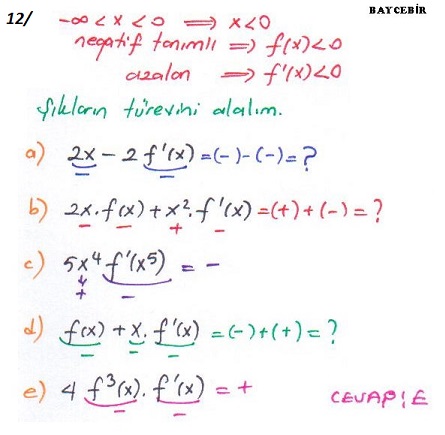 12/ -∞ < x < 0 ⟹ x<0 BAYCEBİR
negatif tanımlı ⟹ f(x)<0
azalan ⟹ f'(x)<0
Şıkların türevini alalım.
a) 2x - 2 f'(x) = (-) - (-) = ?
- -
b) 2x.f(x) + x².f'(x) = (+) + (-) = ?
- - + -
c) 5x⁴ f'(x⁵) = -
+ -
d) f(x) + x. f'(x) = (-) + (+) = ?
- - -
e) 4 f³(x). f'(x) = + CEVAP:E
- -